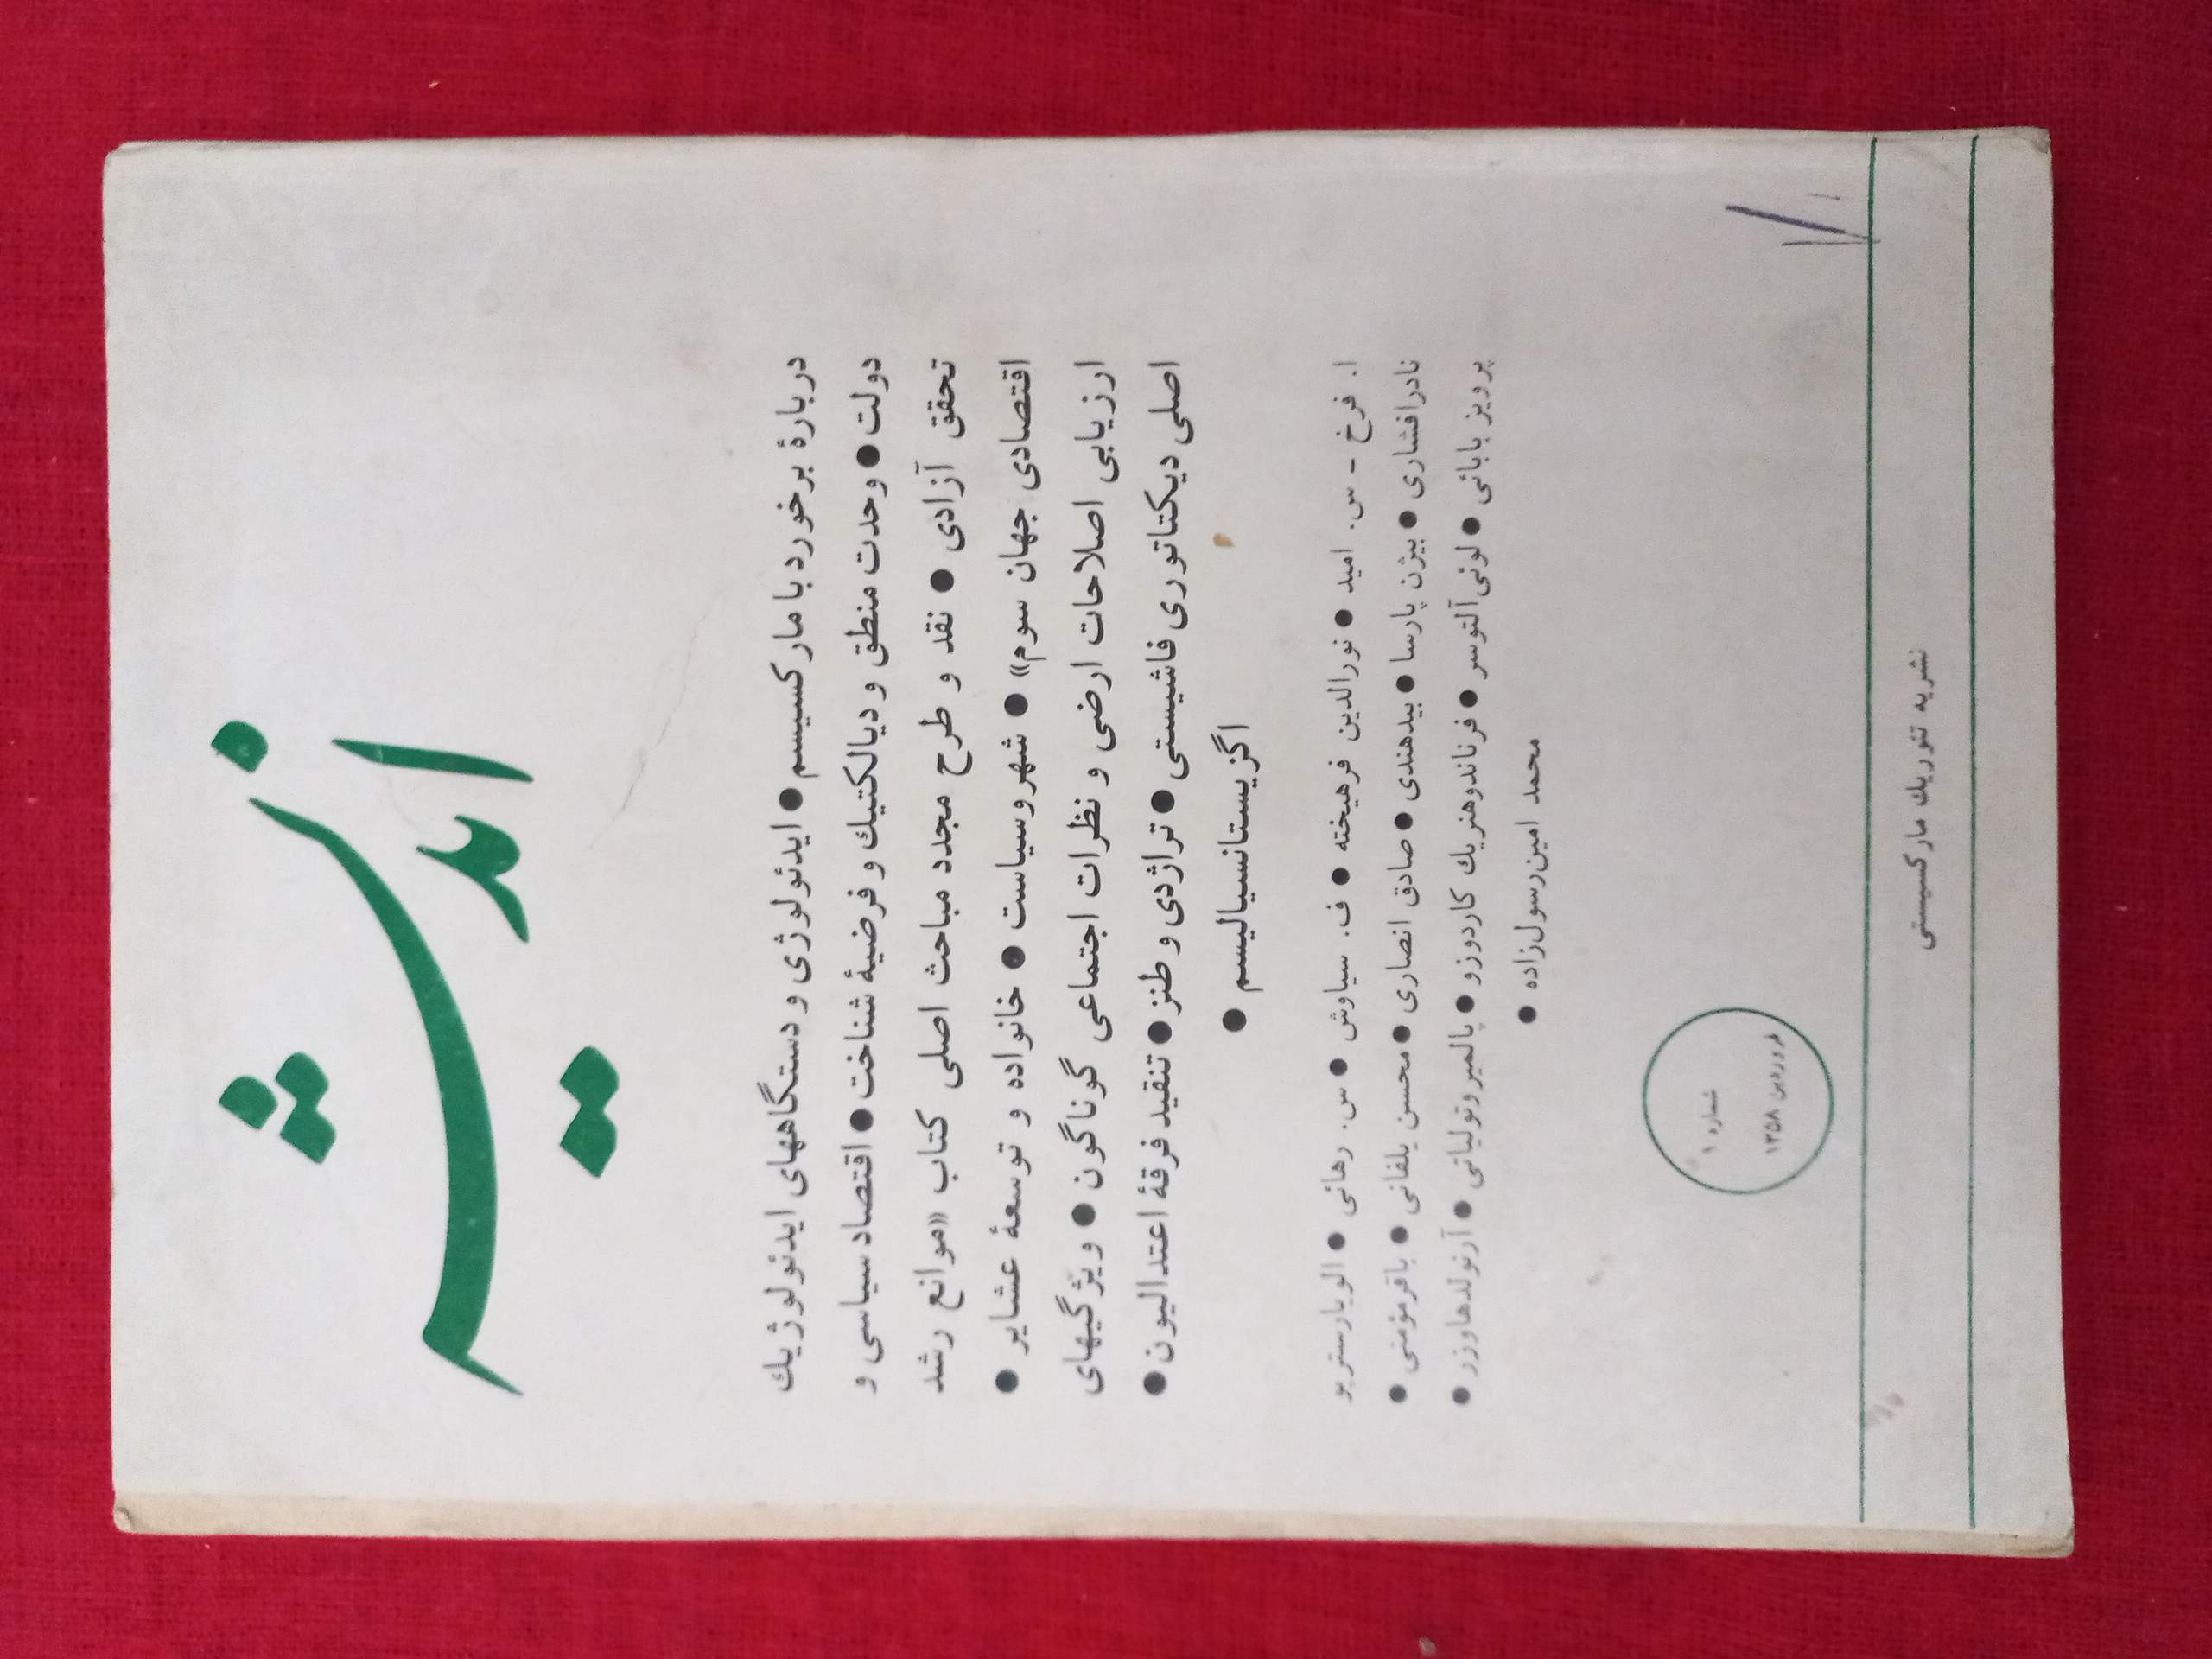 اندیشه
دربارهٔ برخورد با مارکسیسم ● ایدئولوژی و دستگاههای ایدئولوژیك
دولت ● وحدت منطق و دیالکتیك و فرضیهٔ شناخت ● اقتصاد سیاسی و
تحقق آزادی ● نقد و طرح مجدد مباحث اصلی کتاب «موانع رشد
اقتصادی جهان سوم» ● شهر و سیاست ● خانواده و توسعهٔ عشایر ●
ارزیابی اصلاحات ارضی و نظرات اجتماعی گوناگون ● ویژگیهای
اصلی دیکتاتوری فاشیستی ● تراژدی و طنز ● تنقید فرقهٔ اعتدالیون ●
اگزیستانسیالیسم ●
ا. فرخ - س. امید ● نورالدین فرهیخته ● ف. سیاوش ● س. رهائی ● الویارستریو
نادر افشاری ● بیژن پارسا ● بیدهندی ● صادق انصاری ● محسن یلفانی ● باقر مؤمنی ●
پرویز بابائی ● لوئی آلتوسر ● فرناندو هنریك کاردوزو ● پالمیرو تولیاتی ● آرنولدهاوزر ●
محمد امین رسول‌زاده ●
شماره ۱
فروردین ۱۳۵۸
نشریه تئوریك مارکسیستی